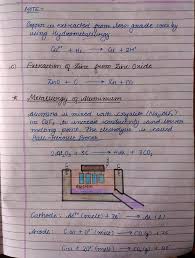 NOTE-
Copper is extracted from low grade ores by
using Hydrometallurgy
Cu²⁺ + H₂ → Cu + 2H⁺
Extraction of Zinc from Zinc Oxide
ZnO + C → Zn + CO
* Metallurgy of Aluminium
Alumina is mixed with cryolite (Na₃AlF₆)
or CaF₂ to increase conductivity and lower
melting point. The electrolysis is called
Hall-Heroult Process
2Al₂O₃ + 3C → 4Al + 3CO₂
Cathode: Al³⁺ (melt) + 3e⁻ → Al (l)
Anode: C(s) + O²⁻ (melt) → CO(g) + 2e⁻
C(s) + 2O²⁻ (melt) → CO₂(g) + 4e⁻